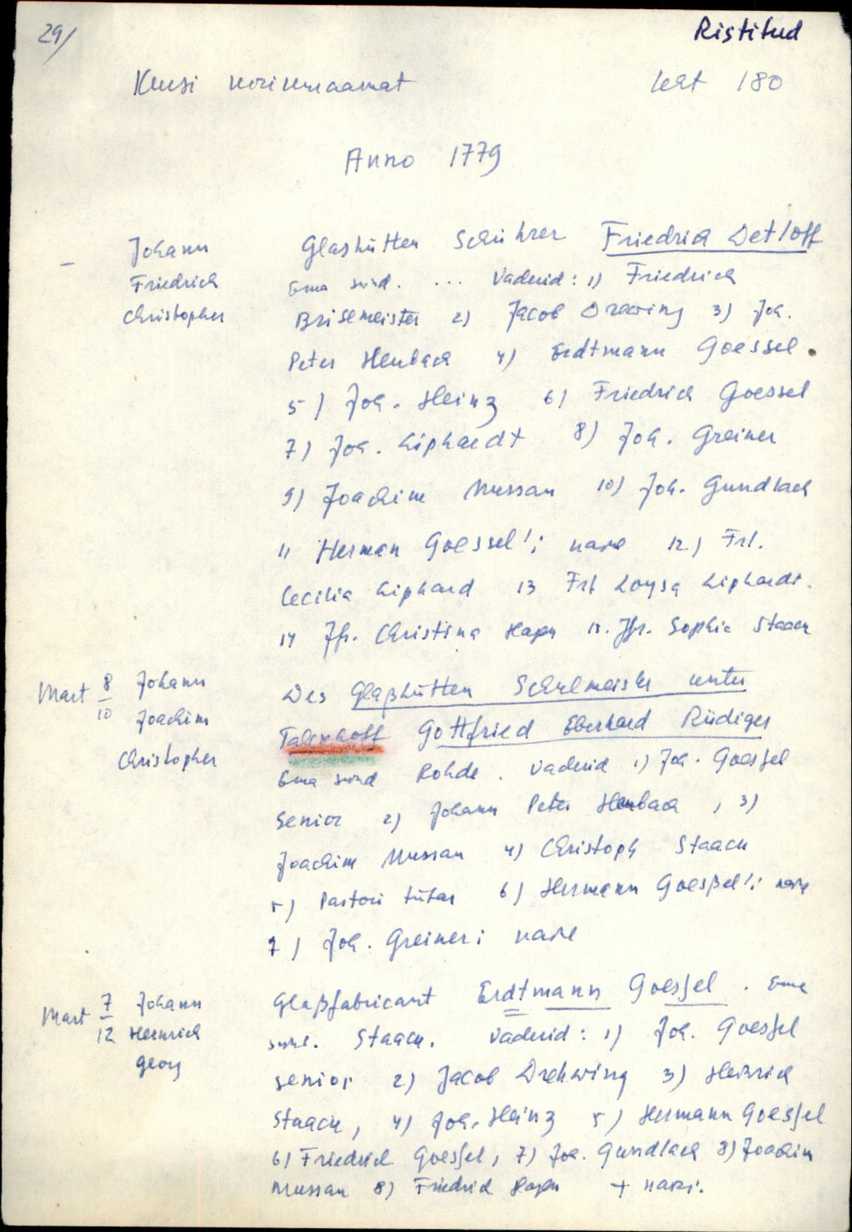 29/
Ristitud
Kuusi kirikuraamat leht 180
Anno 1779
Johann Glashütten Schührer Friedrich Detloff
Friedrich Ema sünd. ... Vaderid: 1) Friedrich
Christopher meister 2) Jacob Drewing 3) Joh.
Peter Heubach 4) Erdtmann Goessel.
5) Joh. Heinz 6) Friedrich Goessel
7) Joh. Liphardt 8) Joh. Greiner
9) Joachim Mussan 10) Joh. Gundlach
11 Herman Goessel'i naine 12) Frl.
Cecilia Liphard 13 Frl Loysa Liphardt.
14 Jfr. Christina Hagen 15. Jfr. Sophie Staack
Mart 8/10 Johann Des Glaßhütten Schulmeister unter
Joachim Gottfried Eberhard Rüdiger
Christopher Ema sünd Rohde. Vaderid 1) Joh. Goessel
Senior 2) Johann Peter Heubach, 3)
Joachim Mussan 4) Christoph Staack
5) Pastori tütar 6) Hermann Goeßel'i naine
7) Joh. Greineri naine
Mart 7/12 Johann Glaßfabricant Erdtmann Goessel. Ema
Heinrich sünd. Staack. Vaderid: 1) Joh. Goessel
Georg senior 2) Jacob Drehwing 3) Heinrich
Staack, 4) Joh. Heinz 5) Hermann Goessel
6) Friedrich Goessel, 7) Joh. Gundlach 8) Joachim
Mussan 8) Friedrich Hagen + naisi.